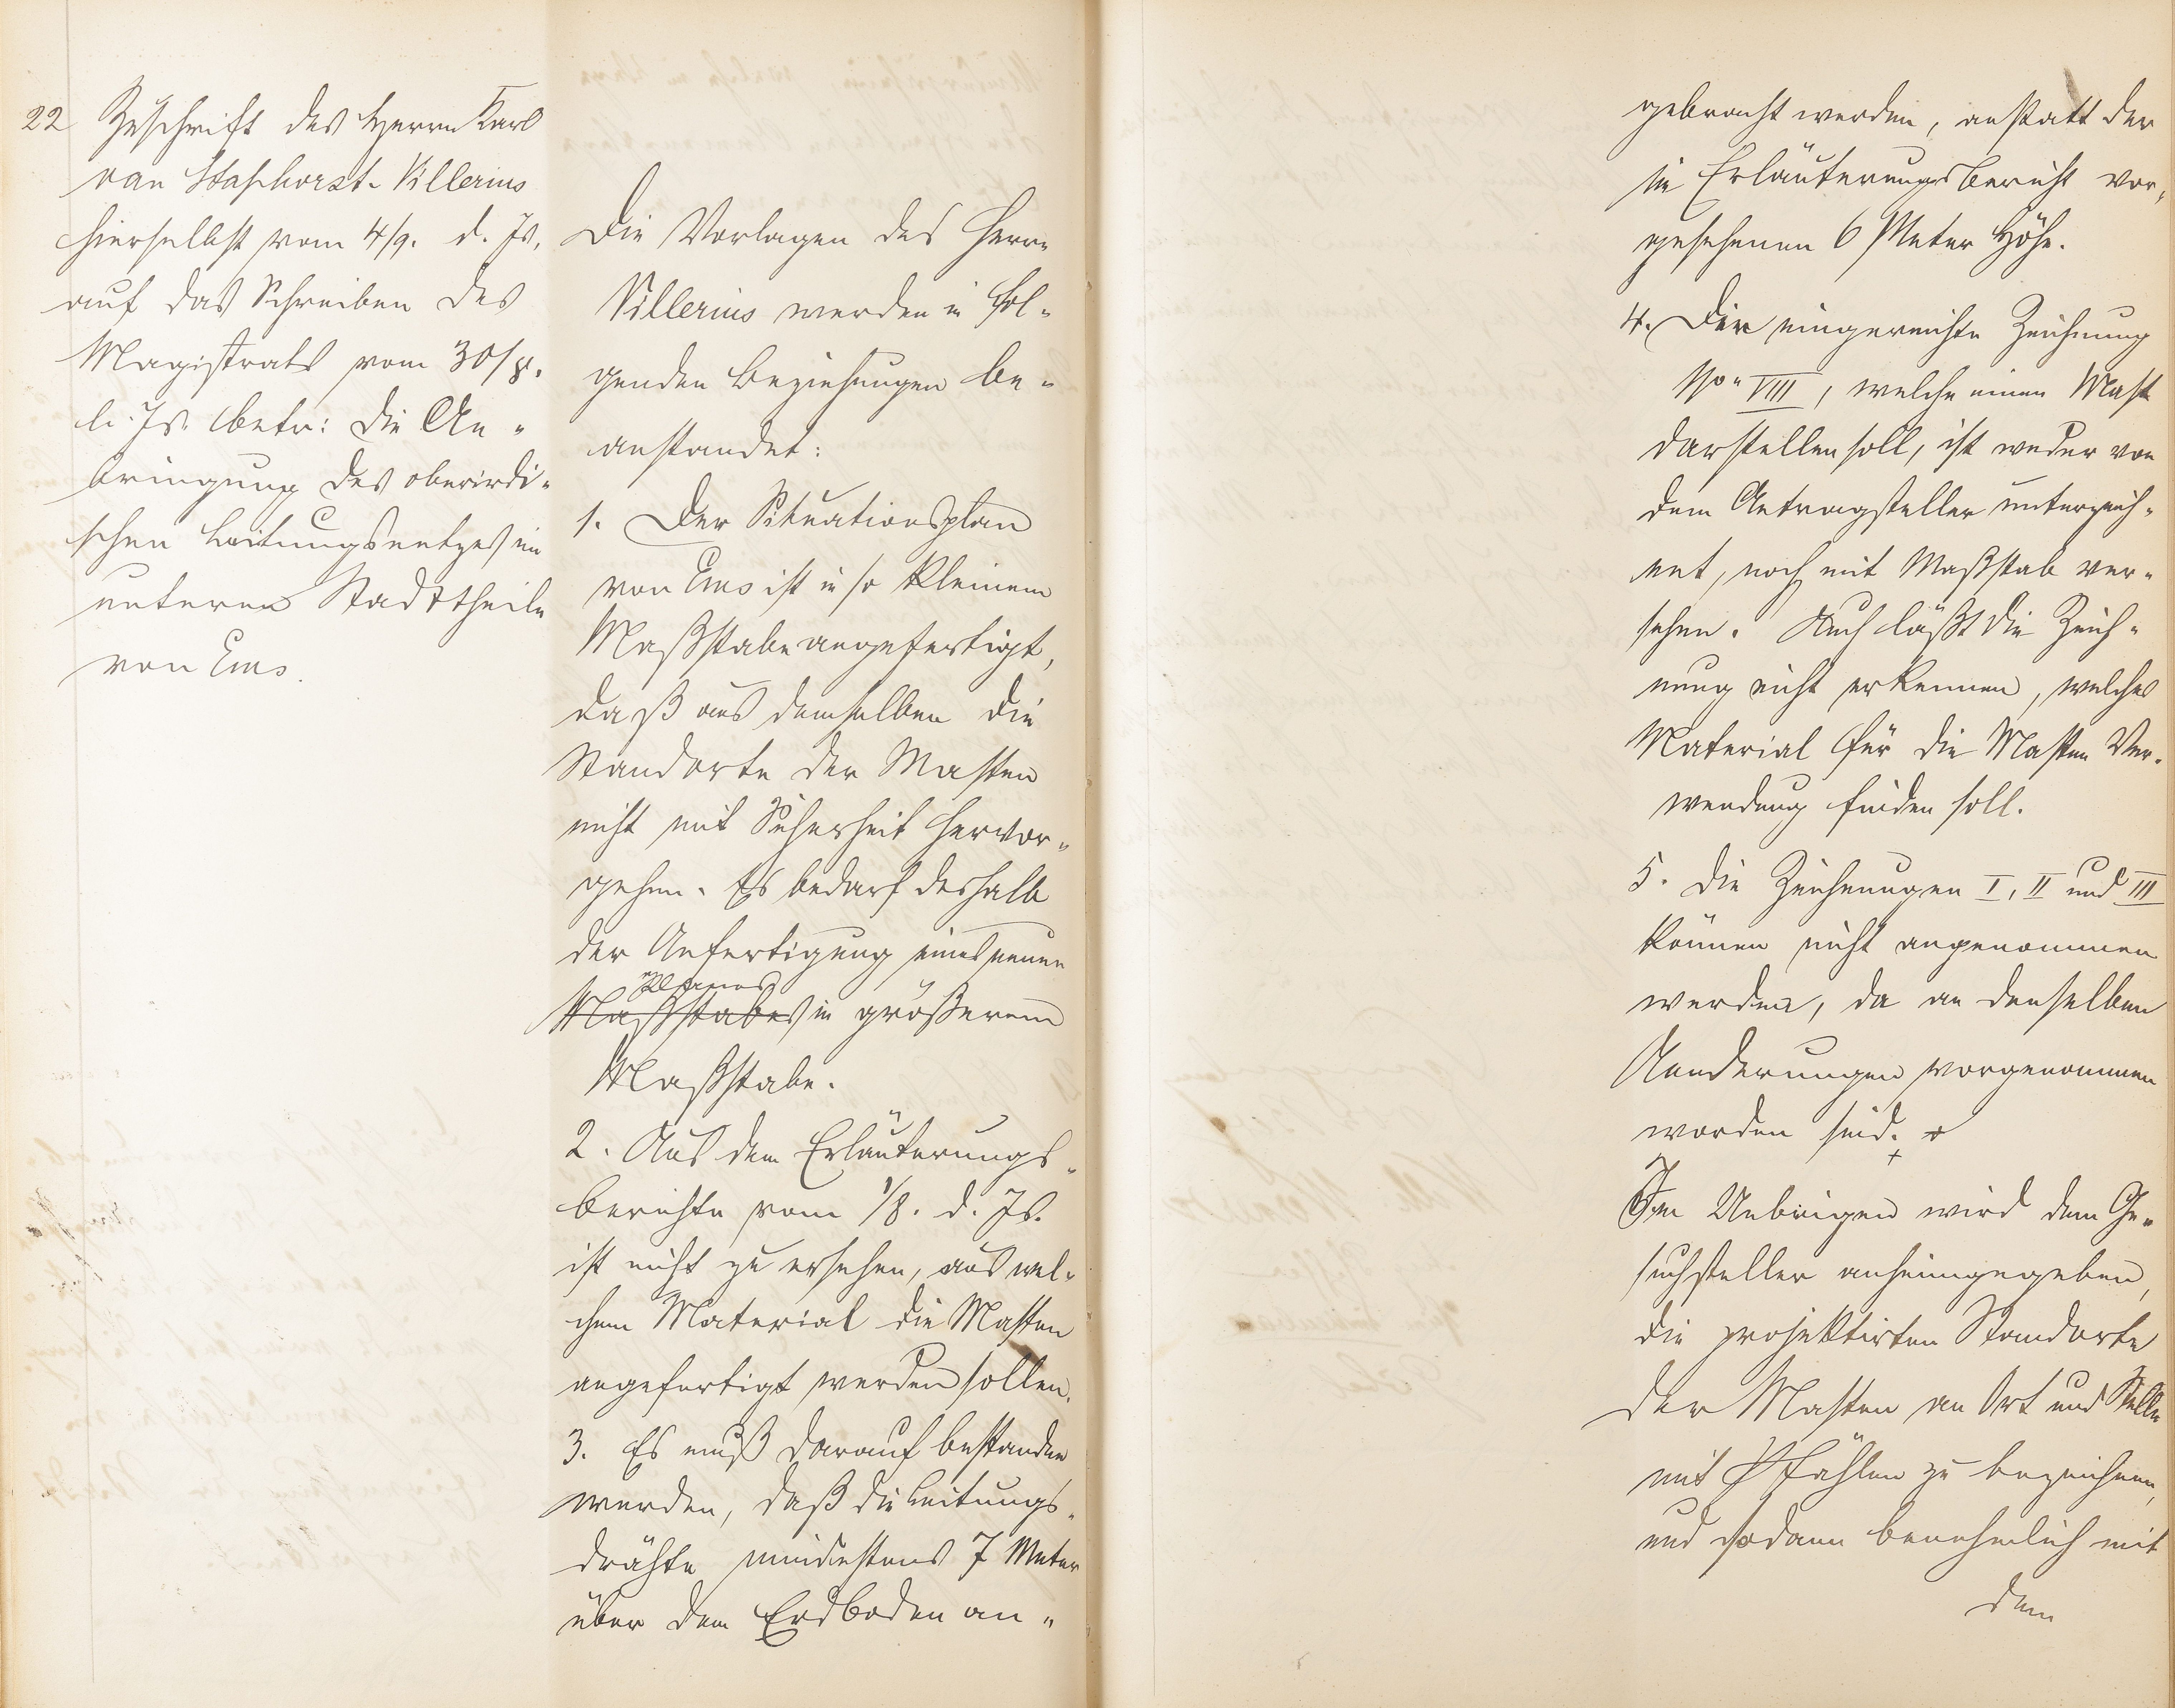 22 Zuschrift des Herrn Karl
van Staphorst-Villerius
hierselbst vom 4/9. d. Js.
auf das Schreiben des
Magistrats vom 30/8.
l. Js. betr: die An-
bringung des oberirdi-
schen Leitungsnetzes im
unteren Stadttheile
von Ems.
Die Vorlagen des Herrn
Villerius werden in fol-
genden Beziehungen be-
anstandet:
1. Der Situationsplan
von Ems ist in so kleinem
Maßstabe angefertigt,
daß aus demselben die
Standorte der Masten
nicht mit Sicherheit hervor-
gehen. Es bedarf deshalb
der Anfertigung eines neuen
Planes
Maßstabes in größerem
Maßstabe.
2. Aus dem Erläuterungs-
berichte vom 1/8. d. Js.
ist nicht zu ersehen, aus wel-
chem Material die Masten
angefertigt werden sollen.
3. Es muß darauf bestanden
werden, daß die Leitungs-
drähte mindestens 7 Meter
über dem Erdboden an-
gebracht werden, anstatt der
im Erläuterungsbericht vor-
gesehenen 6 Meter Höhe.
4. Die eingereichte Zeichnung
No. VIII, welche einen Mast
darstellen soll, ist weder von
dem Antragsteller unterzeich-
net, noch mit Maßstab ver-
sehen. Auch läßt die Zeich-
nung nicht erkennen, welches
Material für die Masten Ver-
wendung finden soll.
5. Die Zeichnungen I, II und III
können nicht angenommen
werden, da an denselben
Aenderungen vorgenommen
worden sind.
Im Uebrigen wird dem Ge-
suchsteller anheimgegeben,
die projektirten Standorte
der Masten an Ort und Stelle
mit Pfählen zu bezeichnen,
und sodann benehmlich mit
dem